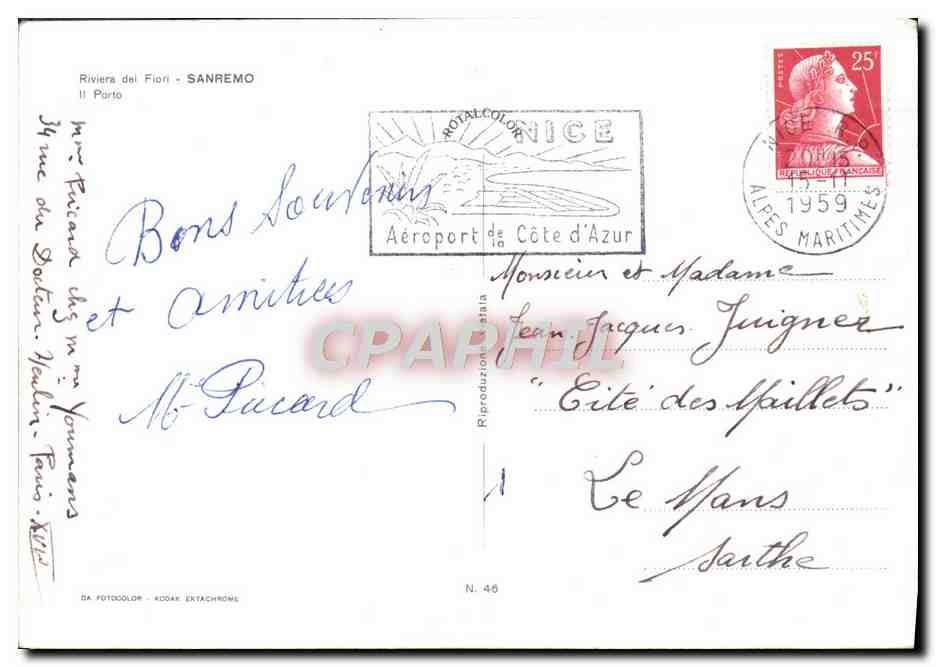 Riviera dei Fiori - SANREMO
Il Porto
ROTALCOLOR
NICE
Aéroport de la Côte d'Azur
POSTES
25F
REPUBLIQUE FRANÇAISE
NICE R.P.
20H15
15-11
1959
ALPES MARITIMES
Bons Souvenirs
et amitiés
M. Picard
Mme Picard chez Mme Youmans
34 rue du Docteur Heulin - Paris - XVII
Riproduzione vietata
Monsieur et Madame
Jean-Jacques Juignez
"Cité des Maillets"
Le Mans
Sarthe
CPAPHIL
N. 46
DA FOTOCOLOR - KODAK EKTACHROME